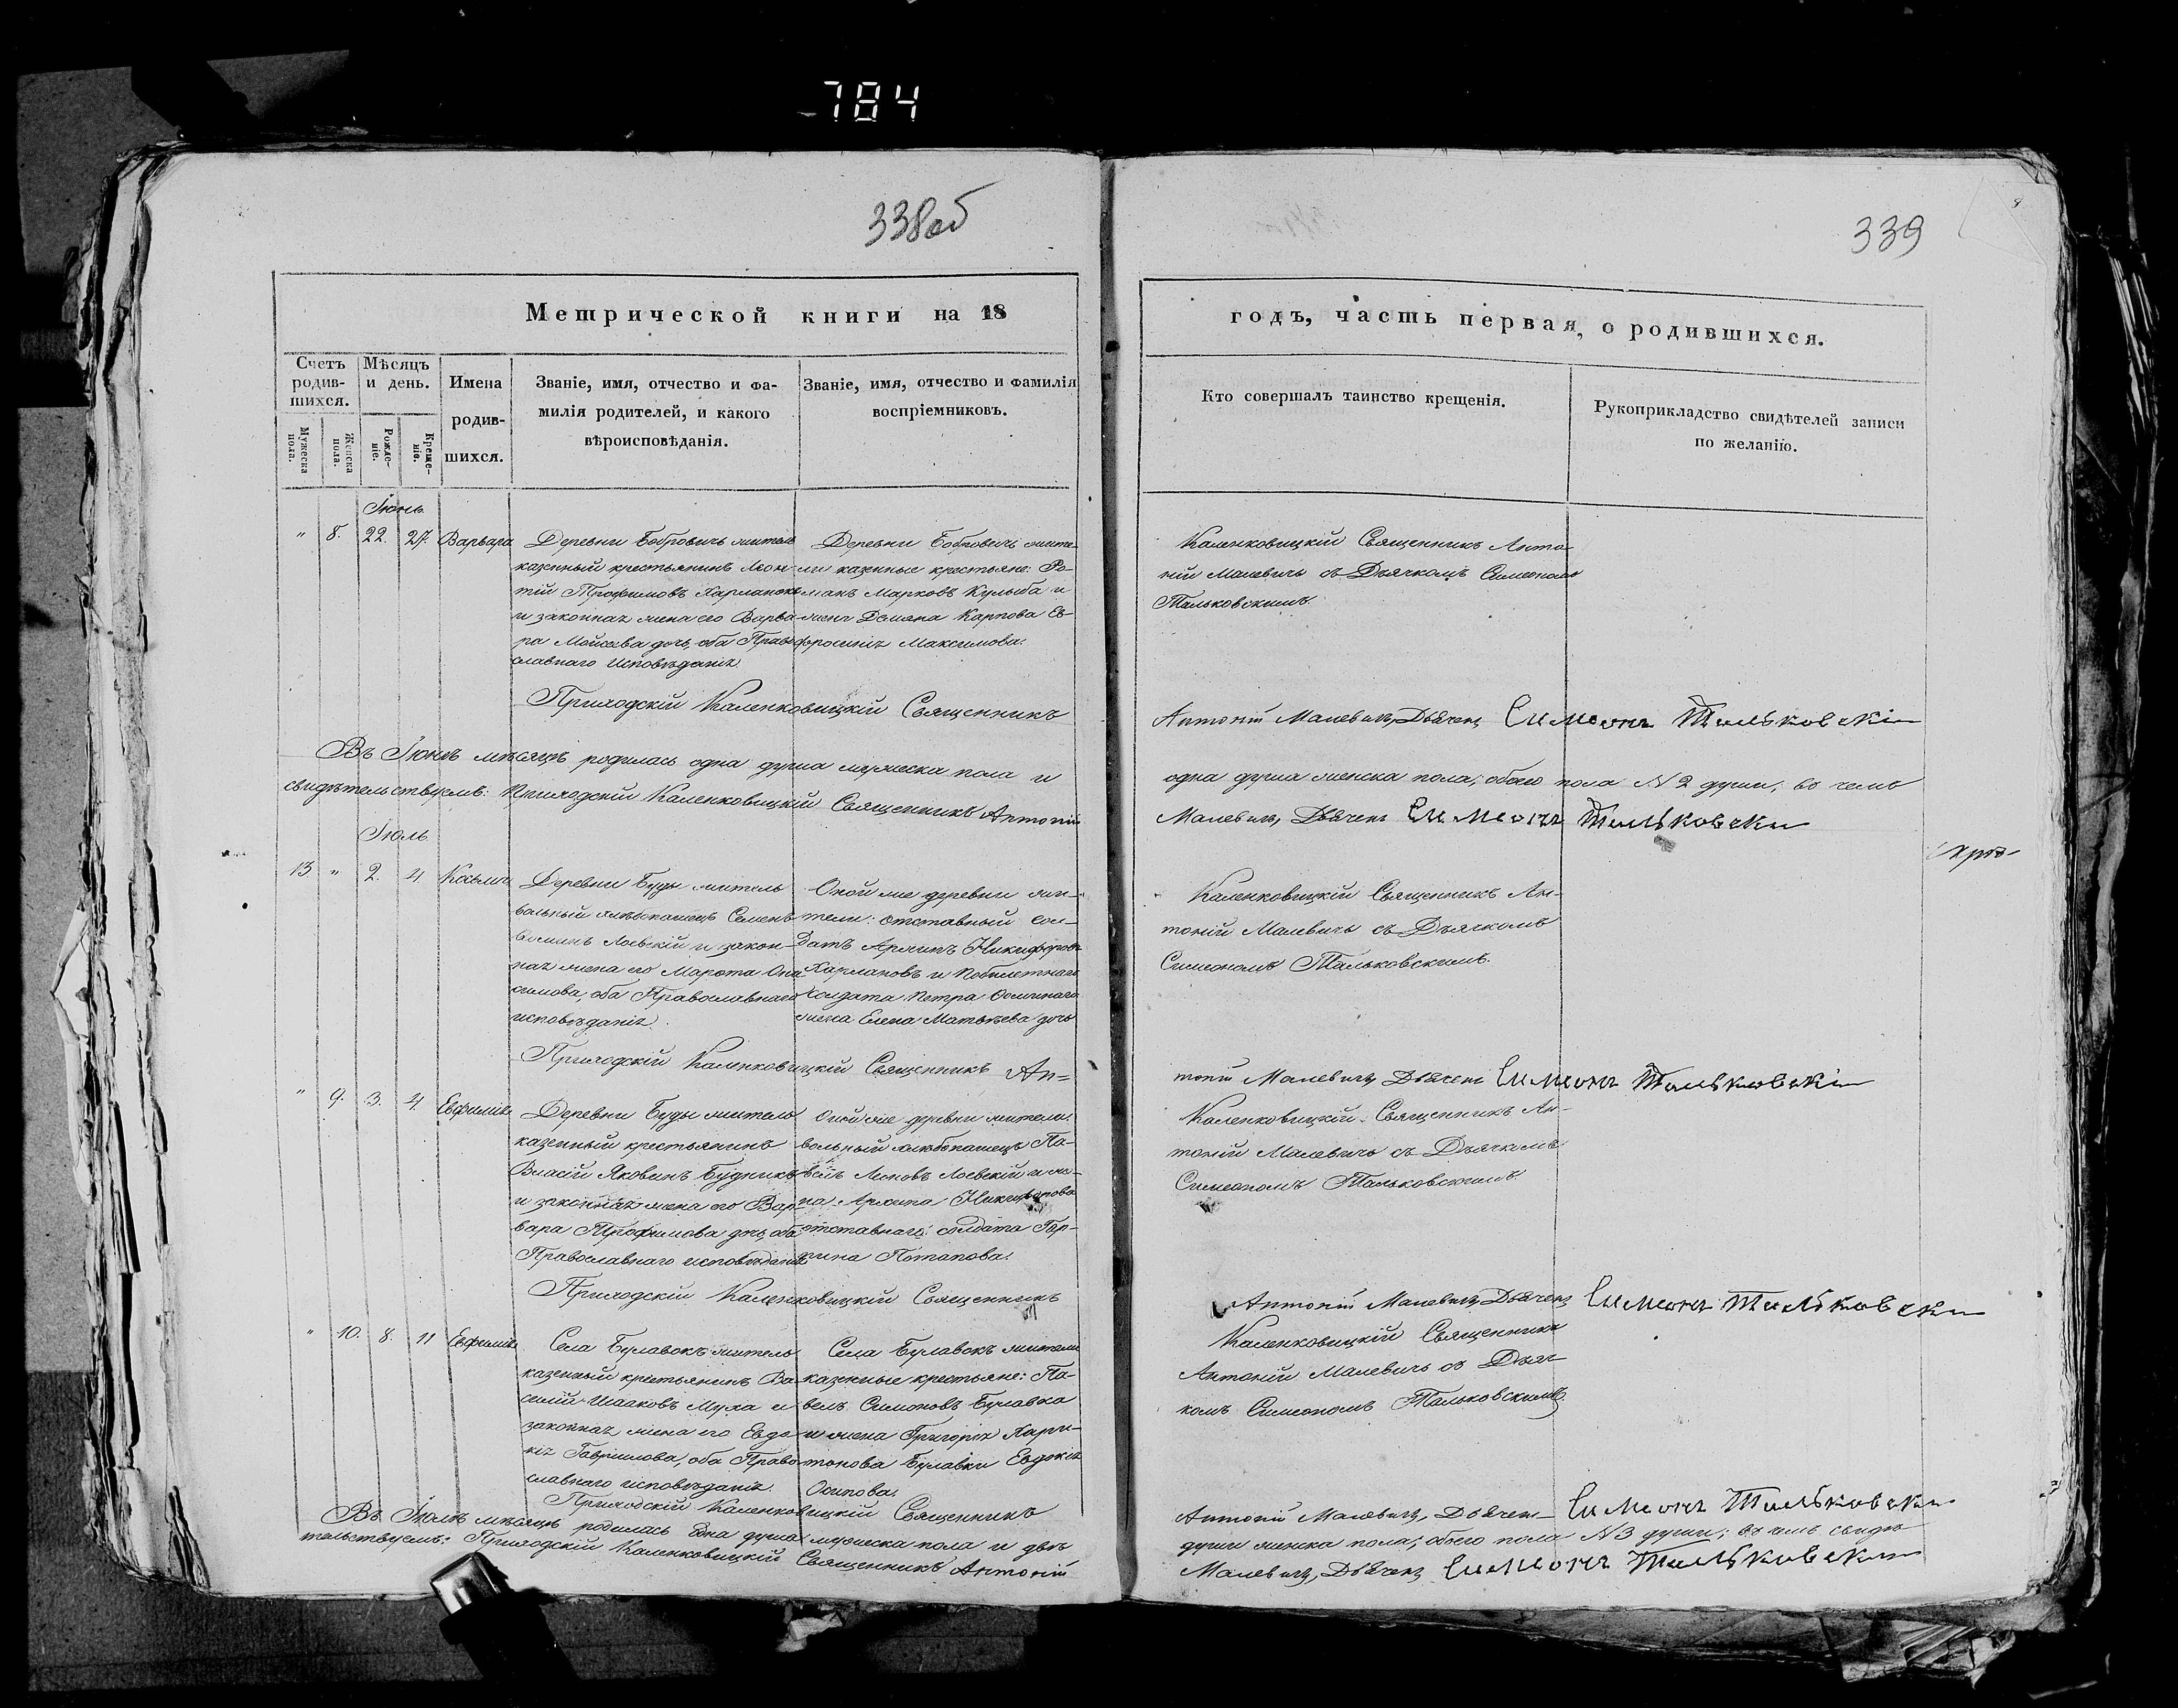 784
338об
339
Метрической книги на 18
годъ, часть первая, о родившихся.
Счетъ родившихся.
Мѣсяцъ и день.
Имена родившихся.
Званіе, имя, отчество и фамилія родителей, и какого вѣроисповѣданія.
Званіе, имя, отчество и фамилія воспріемниковъ.
Кто совершалъ таинство крещенія.
Рукоприкладство свидѣтелей записи по желанію.
Мужеска пола.
Женска пола.
Рожденіе.
Крещеніе.
Іюнь
" 8. 22. 27. Варвара
Деревни Бобровичь житель
казенный крестьянинъ Леон-
тій Трофимовъ
и законная жена его Варва-
ра Мойсеева дочь, оба Право-
славнаго исповѣданія.
Деревни Бобровичь жите-
ли казенные крестьяне: Ро-
манъ Марковъ Кулыба и
жена Демяна Карпова Ев-
фросинія Максимова.
Каленковицкій Священникъ Анто-
ній Малевичь съ Дьячкомъ Симеономъ
Тальковскимъ.
Приходскій Каленковицкій Священникъ
Антоній Малевичъ, Дьячекъ Симеонъ Тальковскій
Въ Іюнѣ мѣсяцѣ родилась одна душа мужеска пола и
одна душа женска пола; обоего пола N 2 души, въ чемъ
свидѣтельствуемъ: Приходскій Каленковицкій Священникъ Антоній
Малевичъ, Дьячекъ Симеонъ Тальковскій
Іюль
13 " 2. 4. Козьма
Деревни Буды житель
вольный хлѣбопашецъ Семенъ
Лоевскій и закон-
ная жена его Марфа Она-
симова, оба Православнаго
исповѣданія.
Оной же деревни жи-
тели: отставный сол-
датъ Архипъ Никифоровъ
Харлановъ и
солдата Петра
жена Елена Матвѣева дочь
Каленковицкій Священникъ Ан-
тоній Малевичь съ Дьячкомъ
Симеономъ Тальковскимъ.
Приходскій Каленковицкій Священникъ Ан-
тоній Малевичъ, Дьячекъ Симеонъ Тальковскій
" 9. 3. 4. Евфимія
Деревни Буды житель
казенный крестьянинъ
Власій Яковинъ Будникъ
и законная жена его Вар-
вара Трофимова дочь, оба
Православнаго исповѣданія
Оной же деревни жители:
вольный хлѣбопашецъ Па-
велъ Леоновъ Лоевскій и же-
на Архипа Никифорова
отставнаго солдата
Потапова.
Каленковицкій Священникъ Ан-
тоній Малевичь съ Дьячкомъ
Симеономъ Тальковскимъ
Приходскій Каленковицкій Священникъ
Антоній Малевичъ, Дьячекъ Симеонъ Тальковскій
" 10. 8. 11 Евфимія
Села Булавокъ житель
казенный крестьянинъ Ва-
силій Исааковъ Муха и
законная жена его Евдо-
кія Гаврилова, оба Право-
славнаго исповѣданія.
Села Булавокъ жители
казенные крестьяне: Па-
велъ Симоновъ Булавка
и жена Григорія Хари-
тонова Булавки Евдокія
Осипова.
Каленковицкій Священникъ
Антоній Малевичь съ Дьяч-
комъ Симеономъ Тальковскимъ.
Приходскій Каленковицкій Священникъ
Антоній Малевичъ, Дьячекъ Симеонъ Тальковскій
Въ Іюлѣ мѣсяцѣ родилась одна душа мужеска пола и двѣ
души женска пола; обоего пола N 3 души; въ чемъ свидѣ-
тельствуемъ: Приходскій Каленковицкій Священникъ Антоній
Малевичъ, Дьячекъ Симеонъ Тальковскій